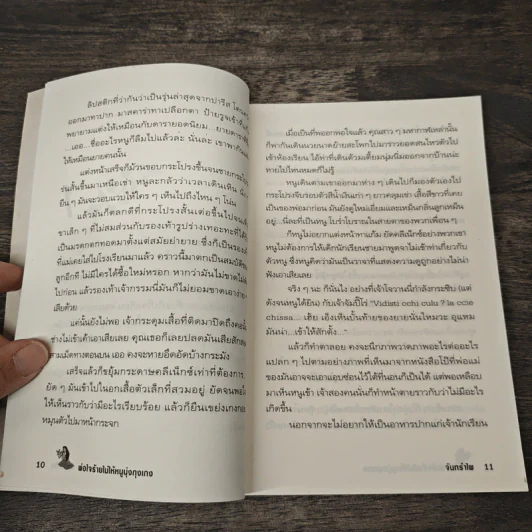 ลิปสติกที่ว่ากันว่าเป็นรุ่นล่าสุดจากปารีส
ออกมาทาปาก มาสคาร่าทาเปลือกตา ป้ายรูจเจ้า
พยายามแต่งให้เหมือนกับดารายอดนิยม
...เออ...ชื่ออะไรหนูก็ลืมไปแล้วละ นั่นละ เขาพา
ให้เหมือนยายคนนั้น
แต่งหน้าเสร็จก็ม้วนขอบกระโปรงขึ้นจน
ร่นสั้นขึ้นมาเหนือเข่า หนูละกลัวว่าเวลาเดินเหิน
อื่น ๆ มันจะวอบแวบให้ใคร ๆ เห็นไปถึงไหน ๆ
แล้วมันก็ตลกดีที่กระโปรงสั้นเต่อขึ้นไปจน
ขาเล็ก ๆ ที่ไม่สมส่วนกับรองเท้ารูปร่างเทอะทะที่
เป็นมรดกตกทอดมาตั้งแต่สมัยย่ายาย ซึ่งก็เป็นของ
ที่แม่เคยใส่ไปโรงเรียนมาแล้ว คราวนี้มาตกเป็นสมบัติ
ลูกอีกที ไม่มีใครได้ซื้อใหม่หรอก หากว่ามันไม่ขาด
ไปก่อน แล้วรองเท้าเจ้ากรรมนี่มันก็ไม่ยอมขาดเอา
เสียด้วย
แค่นั้นยังไม่พอ เจ้ากระดุมเสื้อที่ติดมาปิดถึงคอ
ช่างไม่เข้าท้าเอาเสียเลย คุณเธอก็เลยปลดมันเสีย
สามเม็ดทางตอนบน เออ คงจะหายอึดอัดบ้างกระมัง
เสร็จแล้วก็ขยุ้มกระดาษคลีเน็กซ์เท่าที่ต้องการ
ยัด ๆ มันเข้าไปในอกเสื้อตัวเล็กที่สวมอยู่ ยัดจน
ให้เห็นราวกับว่ามีอะไรเรียบร้อย แล้วก็ยืนเขย่ง
หมุนตัวไปมาหน้ากระจก
10 พ่อใจร้ายไม่ให้หนูนุ่งกุงเกง
เมื่อเป็นที่พออกพอใจแล้ว คุณสาว ๆ มหากาฬเหล่านั้น
ก็พากันเดินนวยนาดย้ายสะโพกไปมาราวยอดสนไหวตัวไป
เข้าห้องเรียน ไอ้ท่าที่เดินตัวมเตี้ยมนุ่มนิ่มออกจากบ้านน่ะ
หายไปไหนหมดก็ไม่รู้
หนูเดินตามเขาออกมาห่าง ๆ เดินไปก็มองตัวเองไป
กระโปรงจีบรอบตัวสีน้ำเงินเก่า ๆ ยาวคลุมเข่า เสื้อสีขาวที่เคย
เป็นของพ่อมาก่อน มันยังดูใหม่เอี่ยมและเหม็นกลิ่นลูกเหม็น
อยู่...นี่ละที่เป็นหนู โบร่ำโบราณในสายตาของพวกเพื่อน ๆ
ก็หนูไม่อยากแต่งหน้าทาแก้ม ยัดคลีเน็กซ์อย่างพวกเขา
หนูไม่ต้องการให้เด็กนักเรียนชายมาพูดจาไม่เข้าท่าเกี่ยวกับ
ตัวหนู ซึ่งหนูคิดว่ามันเป็นวาจาที่แสดงความดูถูกอย่างไม่น่า
ฟังเอาเสียเลย
จริง ๆ นะ ก็นั่นไง อย่างที่เจ้าโจวานนี่กำลังกระซิบ (แต่
ดังจนหนูได้ยิน) กับเจ้าจัมปี้โร่
... เฮ้ย เอ็งเห็นบั้นท้ายของยายนั่นไหมวะ อุแหม
มันน่า...เข้าให้สักตั้ง..."
แล้วก็ทำตาลอย คงจะนึกภาพวาดภาพอะไรต่ออะไร
แปลก ๆ ไปตามอย่างภาพที่เห็นมาจากหนังสือโป๊ที่พ่อแม่
ของมันอาจจะเอาแอบซ่อนไว้ใต้ที่นอนก็เป็นได้ แต่พอเหลือบ
มาเห็นหนูเข้า เจ้าสองคนนั่นก็ทำหน้าตายราวกับว่าไม่มีอะไร
เกิดขึ้น
นอกจากจะไม่อยากให้เป็นอาหารปากแก่เจ้านักเรียน
จันทร์รำไพ 11